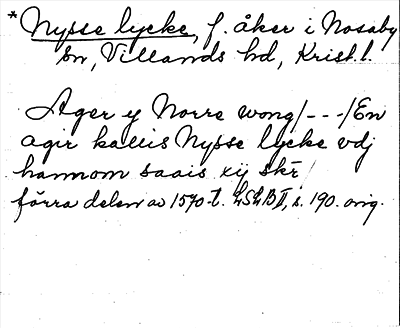 * Nysse lycke, f. åker i Nosaby
sn, Villands hd, Krist. l.
Ager y Norre wong/---/En
agir kallis Nysse lycke vdj
hannom saais xij skr/
förra delen av 1570-t. LSLB II, s. 190. orig.